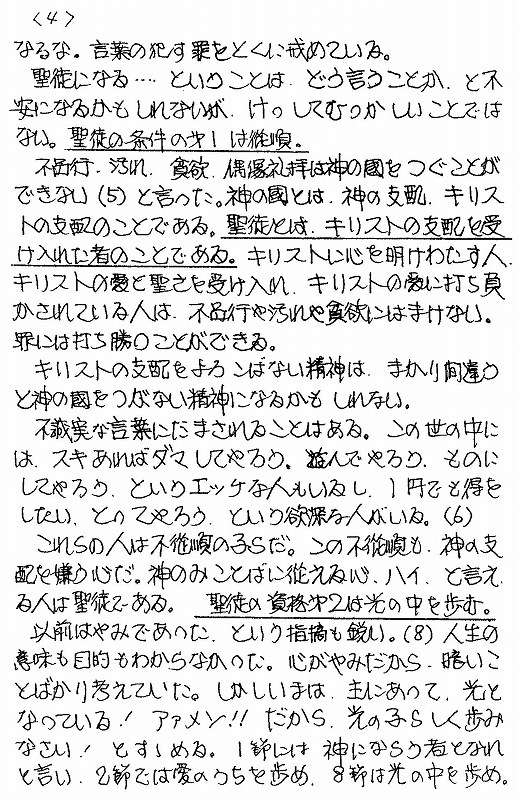 〈4〉
なるな。言葉の犯す罪をとくに戒めている。
聖徒になる‥‥ということは、どう言うことか、と不
安になるかもしれないが、けっしてむつかしいことでは
ない。聖徒の条件の才1は従順。
不品行、汚れ、貪欲、偶像礼拝は神の國をつぐことが
できない(5)と言った。神の國とは、神の支配、キリス
トの支配のことである。聖徒とは、キリストの支配を受
け入れた者のことである。キリストに心を明けわたす人、
キリストの愛と聖さを受け入れ、キリストの愛に打ち負
かされている人は、不品行や汚れや貪欲にはまけない。
罪には打ち勝つことができる。
キリストの支配をよろこばない精神は、まかり間違う
と神の國をつがない精神になるかもしれない。
不誠実な言葉にだまされることはある。この世の中に
は、スキあればダマしてやろう、並んでやろう、ものに
してやろう、というエッチな人もいるし、1円でも得を
したい、とってやろう、という欲深な人がいる。(6)
これらの人は不従順の子らだ。この不従順も、神の支
配を嫌う心だ。神のみことばに従える心、ハイ、と言え
る人は聖徒である。 聖徒の資格才2は光の中を歩む。
以前はやみであった、という指摘も鋭い。(8)人生の
意味も目的もわからなかった。心がやみだから、暗いこ
とばかり考えていた。しかしいまは、主にあって、光と
なっている! アァメン!! だから、光の子らしく歩み
なさい! とすゝめる。1節には 神にならう者となれ
と言い、2節では愛のうちを歩め、8節は光の中を歩め。